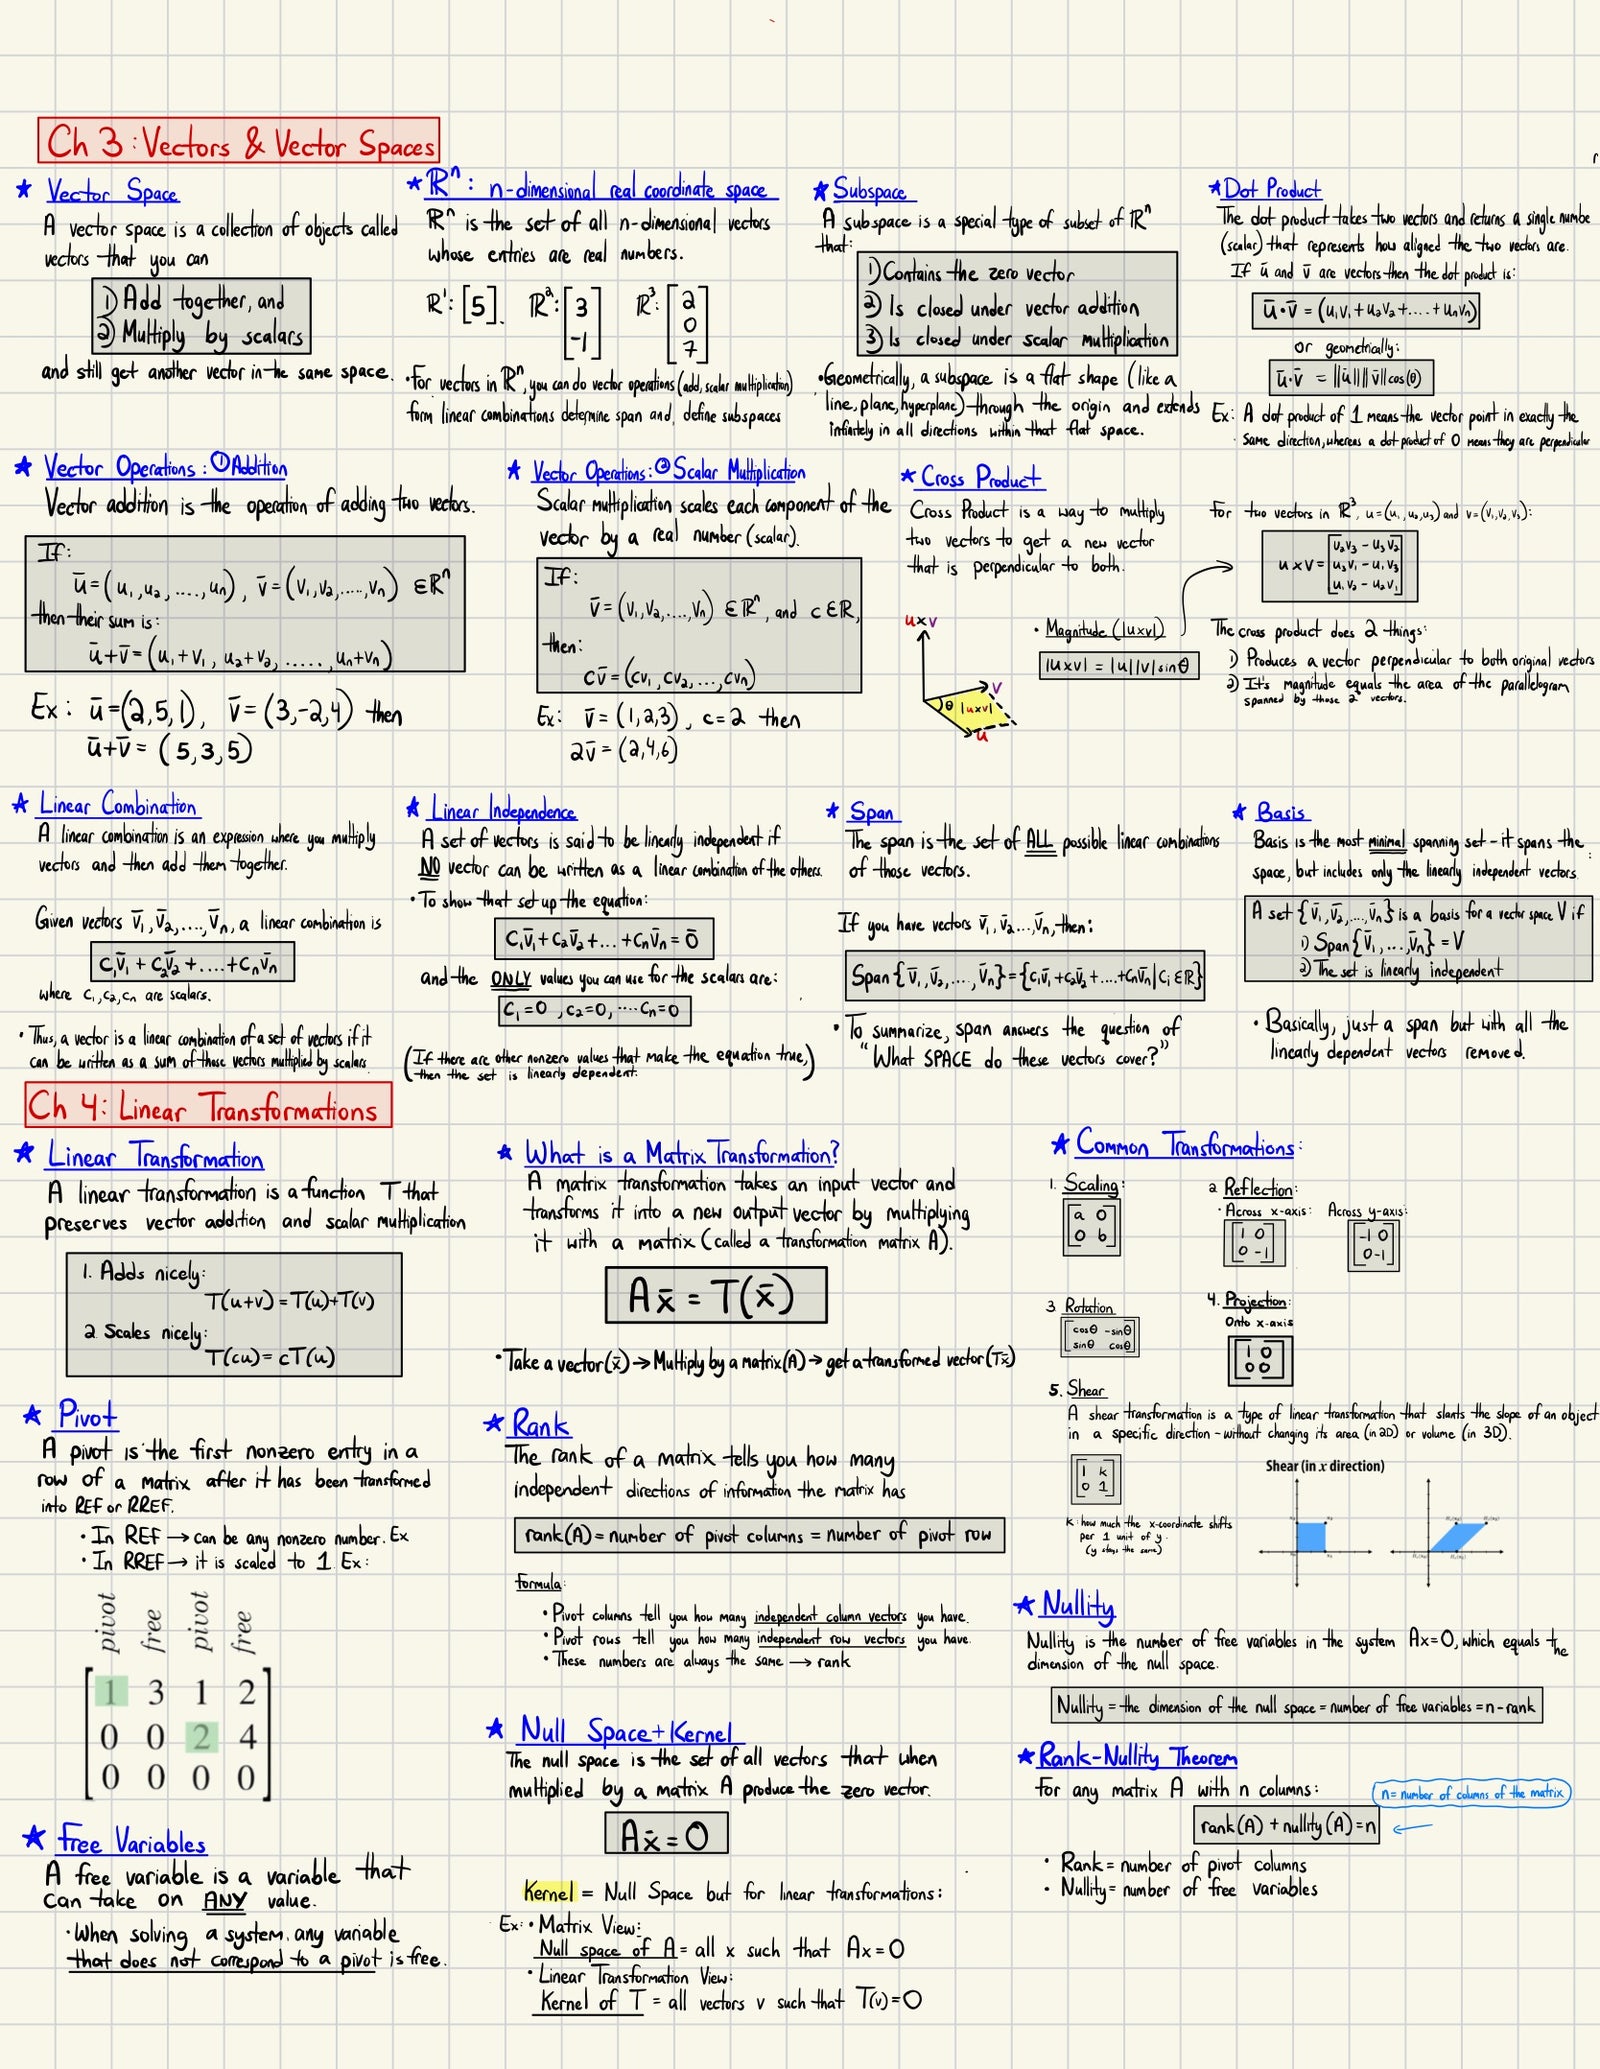 Ch 3: Vectors & Vector Spaces
★ Vector Space
A vector space is a collection of objects called
vectors that you can
1) Add together, and
2) Multiply by scalars
and still get another vector in the same space.
★ ℝⁿ: n-dimensional real coordinate space
ℝⁿ is the set of all n-dimensional vectors
whose entries are real numbers.
ℝ¹: [5]. ℝ²: [3 -1] ℝ³: [2 0 7]
• For vectors in ℝⁿ, you can do vector operations (add, scalar multiplication)
form linear combinations determine span and, define subspaces
★ Subspace
A subspace is a special type of subset of ℝⁿ
that:
1) Contains the zero vector
2) Is closed under vector addition
3) Is closed under scalar multiplication
• Geometrically, a subspace is a flat shape (like a
line, plane, hyperplane) through the origin and extends
infinitely in all directions within that flat space.
★ Dot Product
The dot product takes two vectors and returns a single numbe
(scalar) that represents how aligned the two vectors are.
If ū and v̄ are vectors then the dot product is:
ū·v̄ = (u₁v₁+u₂v₂+....+uₙvₙ)
or geometrically:
ū·v̄ = ||ū|| ||v̄|| cos(θ)
Ex: A dot product of 1 means the vector point in exactly the
same direction, whereas a dot product of 0 means they are perpendicular
★ Vector Operations: ① Addition
Vector addition is the operation of adding two vectors.
If:
ū=(u₁,u₂,....,uₙ), v̄=(v₁,v₂,....,vₙ) ∈ℝⁿ
then their sum is:
ū+v̄=(u₁+v₁, u₂+v₂,.....,uₙ+vₙ)
Ex: ū=(2,5,1), v̄=(3,-2,4) then
ū+v̄= (5,3,5)
★ Vector Operations: ② Scalar Multiplication
Scalar multiplication scales each component of the
vector by a real number (scalar).
If:
v̄=(v₁,v₂,....,vₙ) ∈ℝⁿ, and c∈ℝ,
then:
cv̄=(cv₁,cv₂,...,cvₙ)
Ex: v̄=(1,2,3), c=2 then
2v̄=(2,4,6)
★ Cross Product
Cross Product is a way to multiply
two vectors to get a new vector
that is perpendicular to both.
u×v
v
θ |u×v|
u
• Magnitude (|u×v|)
|u×v| = |u||v|sinθ
For two vectors in ℝ³, u=(u₁,u₂,u₃) and v=(v₁,v₂,v₃):
u×v= [u₂v₃-u₃v₂
u₃v₁-u₁v₃
u₁v₂-u₂v₁]
The cross product does 2 things:
1) Produces a vector perpendicular to both original vectors
2) It's magnitude equals the area of the parallelogram
spanned by those 2 vectors.
★ Linear Combination
A linear combination is an expression where you multiply
vectors and then add them together.
Given vectors v̄₁,v̄₂,....,v̄ₙ, a linear combination is
c₁v̄₁+c₂v̄₂+....+cₙv̄ₙ
where c₁,c₂,cₙ are scalars.
• Thus, a vector is a linear combination of a set of vectors if it
can be written as a sum of those vectors multiplied by scalars
★ Linear Independence
A set of vectors is said to be linearly independent if
NO vector can be written as a linear combination of the others.
• To show that set up the equation:
c₁v̄₁+c₂v̄₂+...+cₙv̄ₙ=0̄
and the ONLY values you can use for the scalars are:
c₁=0, c₂=0, ....cₙ=0
(If there are other nonzero values that make the equation true,
then the set is linearly dependent.)
★ Span
The span is the set of ALL possible linear combinations
of those vectors.
If you have vectors v̄₁,v̄₂...,v̄ₙ, then:
Span{v̄₁,v̄₂,....,v̄ₙ}={c₁v̄₁+c₂v̄₂+....+cₙv̄ₙ|cᵢ∈ℝ}
• To summarize, span answers the question of
"What SPACE do these vectors cover?"
★ Basis
Basis is the most minimal spanning set - it spans the
space, but includes only the linearly independent vectors.
A set {v̄₁,v̄₂,...,v̄ₙ} is a basis for a vector space V if
1) Span{v̄₁,...,v̄ₙ}=V
2) The set is linearly independent
• Basically, just a span but with all the
linearly dependent vectors removed.
Ch 4: Linear Transformations
★ Linear Transformation
A linear transformation is a function T that
preserves vector addition and scalar multiplication
1. Adds nicely:
T(u+v)=T(u)+T(v)
2. Scales nicely:
T(cu)=cT(u)
★ What is a Matrix Transformation?
A matrix transformation takes an input vector and
transforms it into a new output vector by multiplying
it with a matrix (called a transformation matrix A).
Ax̄ = T(x̄)
• Take a vector (x̄) → Multiply by a matrix (A) → get a transformed vector (Tx̄)
★ Common Transformations:
1. Scaling:
[a 0
0 b]
2 Reflection:
• Across x-axis: Across y-axis:
[1 0
0 -1]
[-1 0
0 -1]
3 Rotation
[cosθ -sinθ
sinθ cosθ]
4. Projection:
Onto x-axis
[1 0
0 0]
5. Shear
A shear transformation is a type of linear transformation that slants the slope of an object
in a specific direction - without changing its area (in 2D) or volume (in 3D).
[1 k
0 1]
k: how much the x-coordinate shifts
per 1 unit of y.
(y stays the same)
Shear (in x direction)
★ Pivot
A pivot is the first nonzero entry in a
row of a matrix after it has been transformed
into REF or RREF.
• In REF → can be any nonzero number. Ex
• In RREF → it is scaled to 1. Ex:
pivot free pivot free
1 3 1 2
0 0 2 4
0 0 0 0
★ Free Variables
A free variable is a variable that
can take on ANY value.
• When solving a system, any variable
that does not correspond to a pivot is free.
★ Rank
The rank of a matrix tells you how many
independent directions of information the matrix has
rank(A)=number of pivot columns = number of pivot row
Formula:
• Pivot columns tell you how many independent column vectors you have.
• Pivot rows tell you how many independent row vectors you have.
• These numbers are always the same → rank
★ Null Space+Kernel
The null space is the set of all vectors that when
multiplied by a matrix A produce the zero vector.
Ax̄=0
Kernel = Null Space but for linear transformations:
Ex: • Matrix View:
Null space of A = all x such that Ax=0
• Linear Transformation View:
Kernel of T = all vectors v such that T(v)=0
★ Nullity
Nullity is the number of free variables in the system Ax=0, which equals the
dimension of the null space.
Nullity = the dimension of the null space = number of free variables = n-rank
★ Rank-Nullity Theorem
For any matrix A with n columns:
n= number of columns of the matrix
rank(A)+nullity(A)=n
• Rank = number of pivot columns
• Nullity = number of free variables